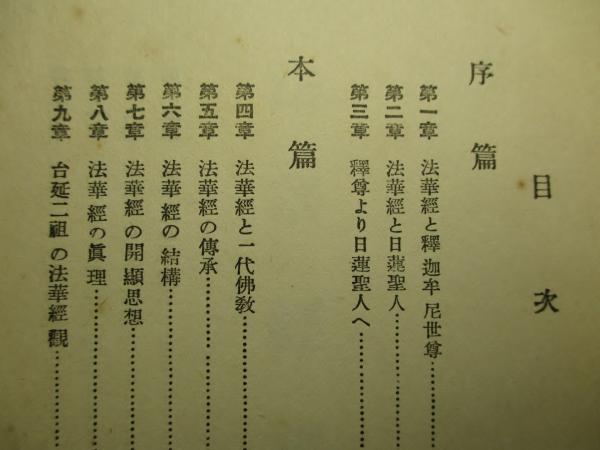 目次
序篇
第一章 法華經と釋迦牟尼世尊…………
第二章 法華經と日蓮聖人…………
第三章 釋尊より日蓮聖人へ…………
本篇
第四章 法華經と一代佛教…………
第五章 法華經の傳承…………
第六章 法華經の結構…………
第七章 法華經の開顯思想…………
第八章 法華經の眞理…………
第九章 台延二祖の法華經觀…………